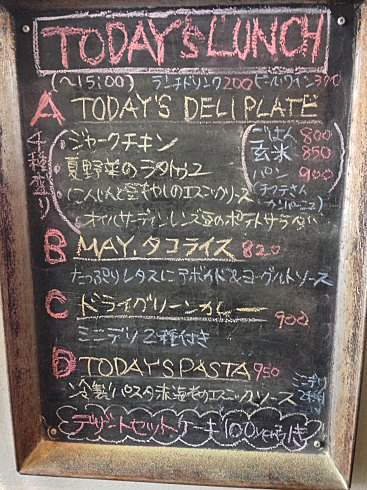 TODAY'S LUNCH
(〜15:00) ランチドリンク200 ビール・ワイン
A TODAY'S DELI PLATE
4種盛り
ジャークチキン
夏野菜のラタトゥユ
にんじんと豆もやしのエスニックソース
オイルサーディンレンズ豆のポテトサラダ
ごはん 800
玄米 850
パン 900
B MAY.タコライス 820
たっぷりレタスにアボカド&ヨーグルトソース
C ドライグリーンカレー 900
ミニデリ2種付き
D TODAY'S PASTA 950
冷製パスタ赤海老のエスニックソース
ミニデリ
2種
デザートセット・ケーキ100yen引き